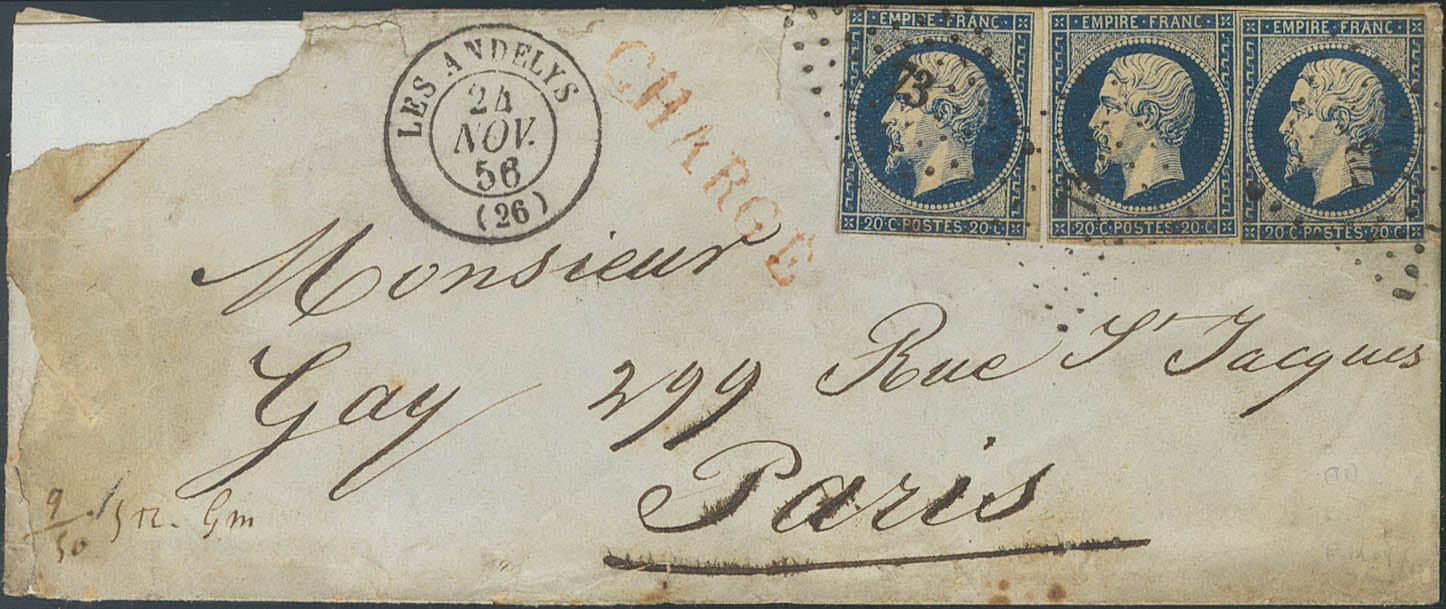 LES ANDELYS
24
NOV.
56
(26)
CHARGÉ
EMPIRE · FRANC ·
20 · C · POSTES · 20 · C ·
73
EMPIRE · FRANC ·
20 · C · POSTES · 20 · C ·
73
EMPIRE · FRANC ·
20 · C · POSTES · 20 · C ·
73
Monsieur
Gay 299 Rue St Jacques
Paris
9
50